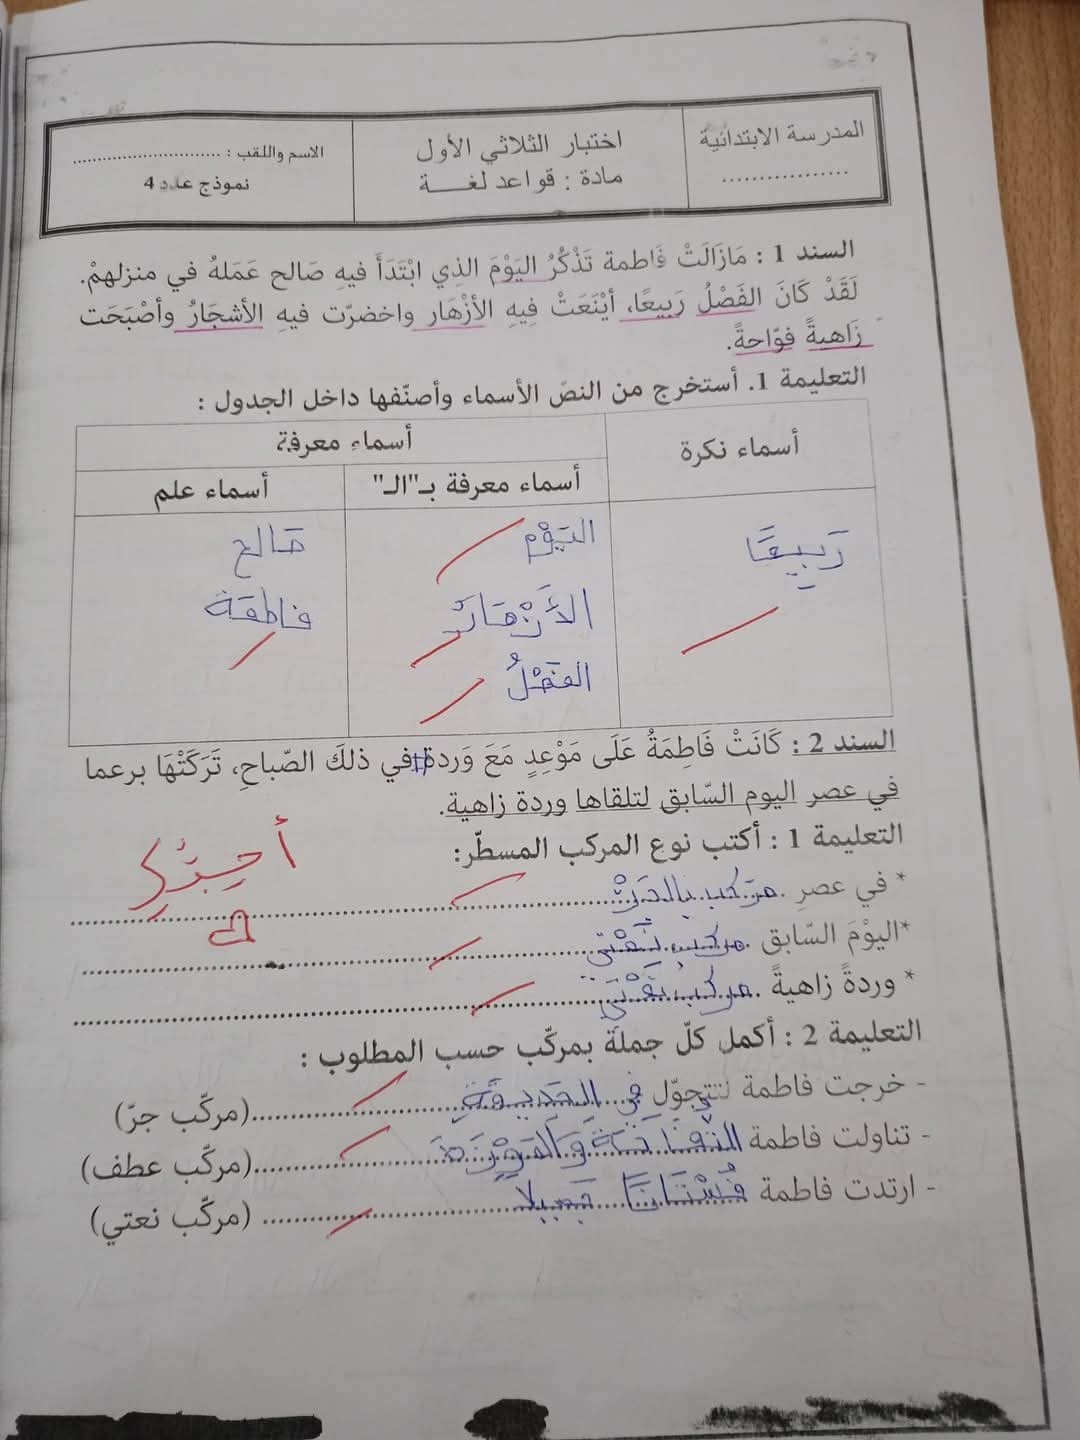 المدرسة الابتدائية
.................
اختبار الثلاثي الأول
مادة : قواعد لغـــة
الاسم واللقب : .............................
نموذج عدد 4
السند 1 : مَازَالَتْ فَاطمة تَذْكُرُ اليَوْمَ الذِي ابْتَدَأَ فيهِ صَالح عَمَلهُ في منزلهمْ.
لَقَدْ كَانَ الفَصْلُ رَبيعًا، أيْنَعَتْ فِيهِ الأزْهَار واخضرّت فيهِ الأشجَارُ وأصْبَحَت
زَاهيةً فوّاحةً.
التعليمة 1. أستخرج من النصّ الأسماء وأصنّفها داخل الجدول :
أسماء نكرة
أسماء معرفة
أسماء معرفة بـ"الـ"
أسماء علم
رَبِيعًا
اليَوْم
الأَزْهَارُ
الفَصْلُ
صَالح
فاطمة
السند 2 : كَانَتْ فَاطِمَةُ عَلَى مَوْعِدٍ مَعَ وَردة في ذلكَ الصّباحِ، تَرَكَتْهَا برعما
في عصر اليوم السّابق لتلقاها وردة زاهية.
التعليمة 1 : أكتب نوع المركب المسطّر:
* في عصرِ مرَكب بالجَرّ
*اليوْمَ السّابق مركب نَعْتي
* وردةً زاهيةً مركب نَعْتي
التعليمة 2 : أكمل كلّ جملة بمركّب حسب المطلوب :
- خرجت فاطمة لتتجوّل في الحَدِيقَةِ (مركّب جرّ)
- تناولت فاطمة التُفَاحَةَ وَالمَوْزَةَ (مركّب عطف)
- ارتدت فاطمة فُسْتَانًا جَمِيلا (مركّب نعتي)